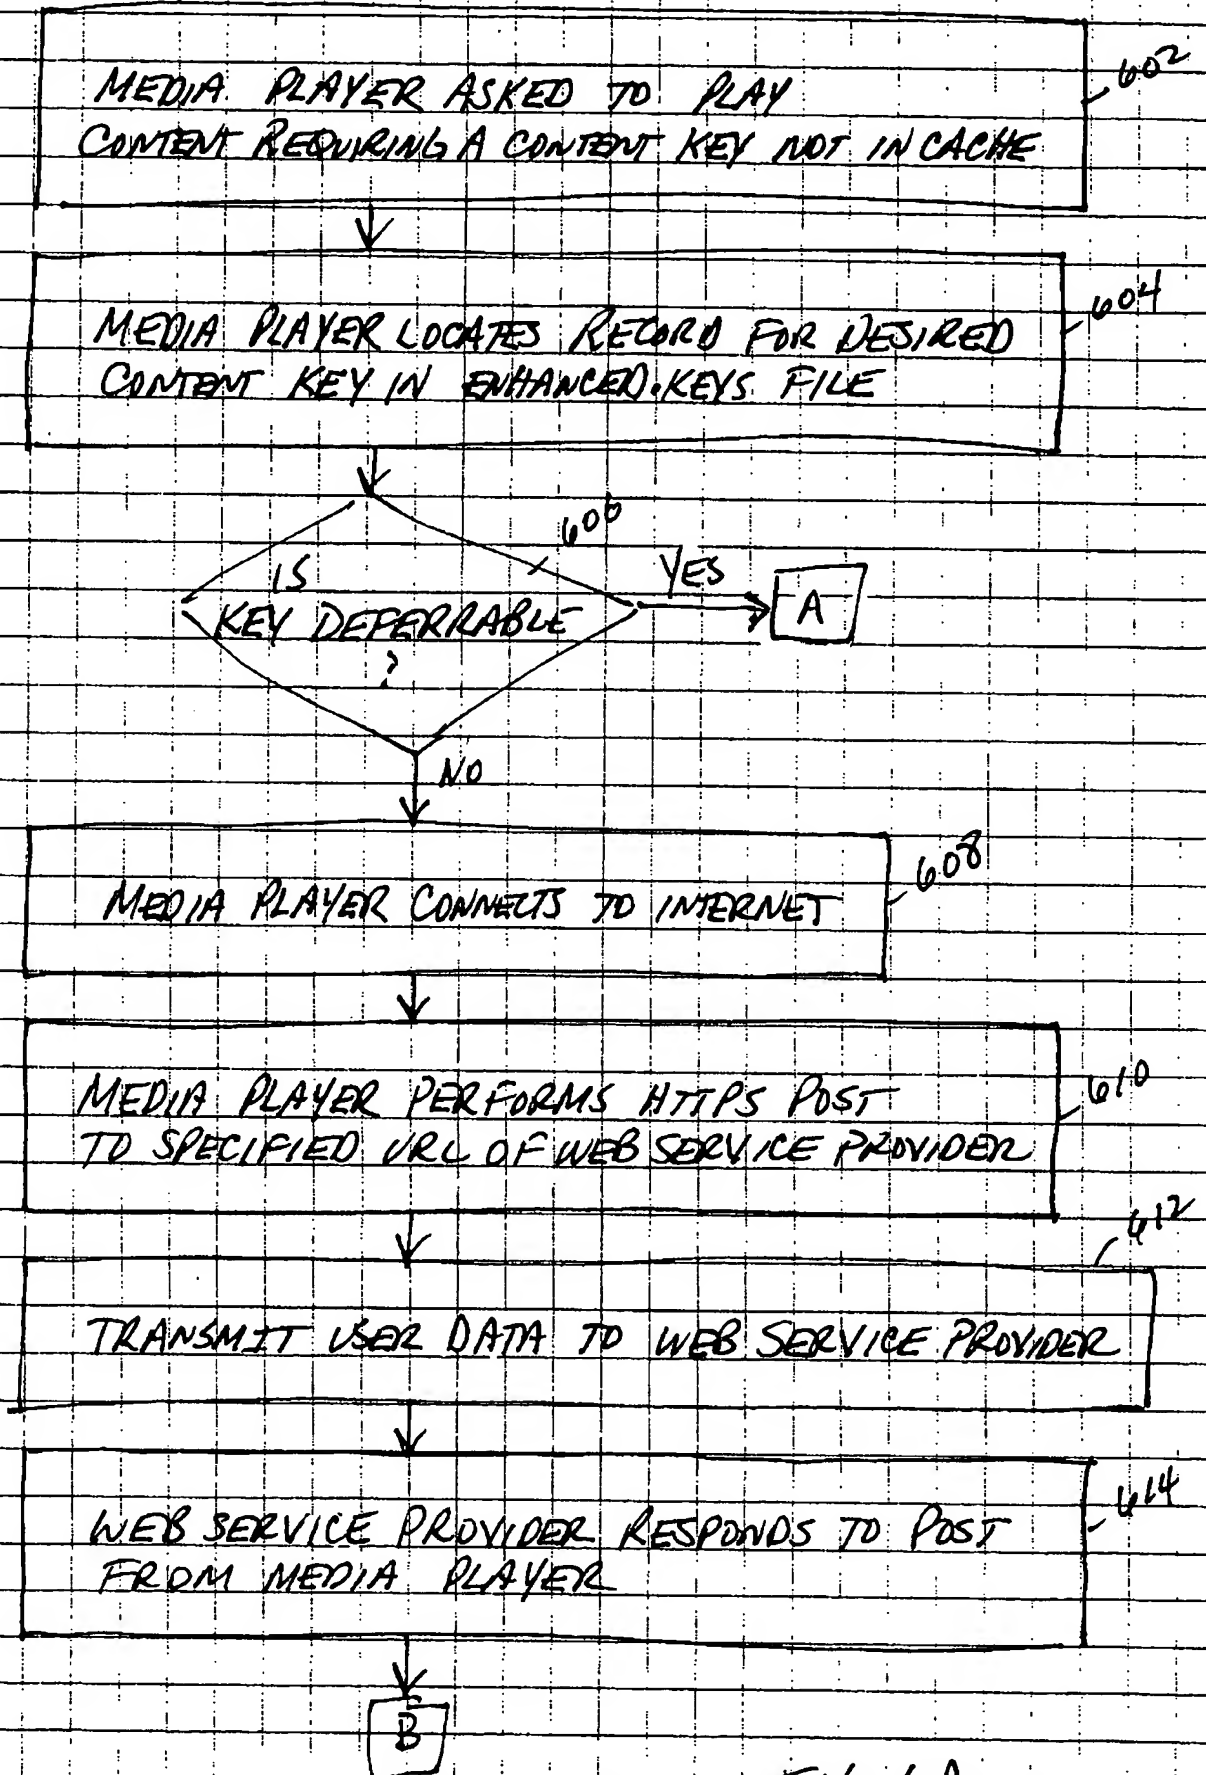 602
MEDIA PLAYER ASKED TO PLAY
CONTENT REQUIRING A CONTENT KEY NOT IN CACHE
604
MEDIA PLAYER LOCATES RECORD FOR DESIRED
CONTENT KEY IN ENHANCED.KEYS FILE
606
IS
KEY DEFERRABLE
?
YES
A
NO
608
MEDIA PLAYER CONNECTS TO INTERNET
610
MEDIA PLAYER PERFORMS HTTPS POST
TO SPECIFIED URL OF WEB SERVICE PROVIDER
612
TRANSMIT USER DATA TO WEB SERVICE PROVIDER
614
WEB SERVICE PROVIDER RESPONDS TO POST
FROM MEDIA PLAYER
B